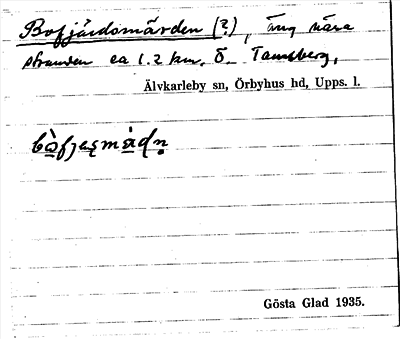 Bofjärdsmården (?), äng nära
stranden ca 1.2 km. Ö. Tamsberg,
Älvkarleby sn, Örbyhus hd, Upps. l.
bòfjeṣmàḍṇ
Gösta Glad 1935.